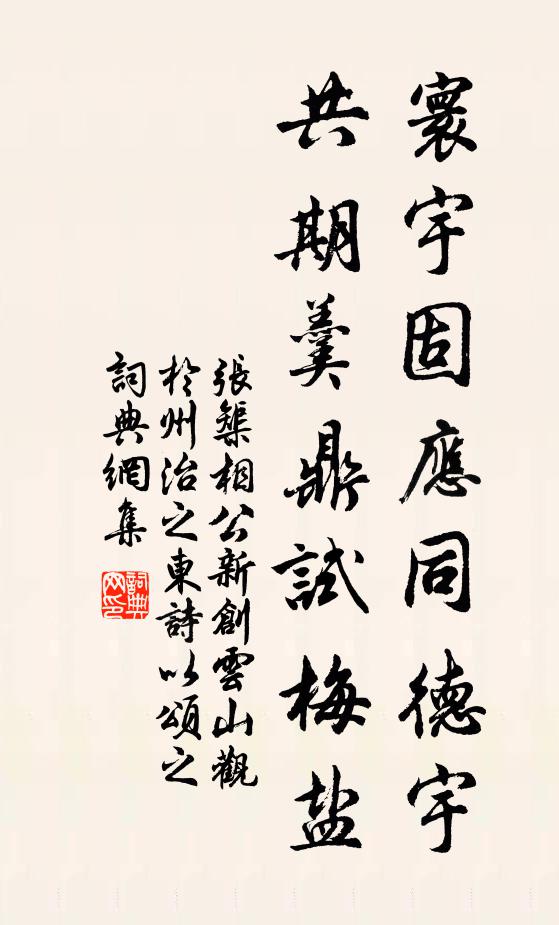 寰宇固應同德宇
共期羹鼎試梅盐
張榘相公新創雲山觀
於州治之東詩以頌之
詞典網集
詞典
网印